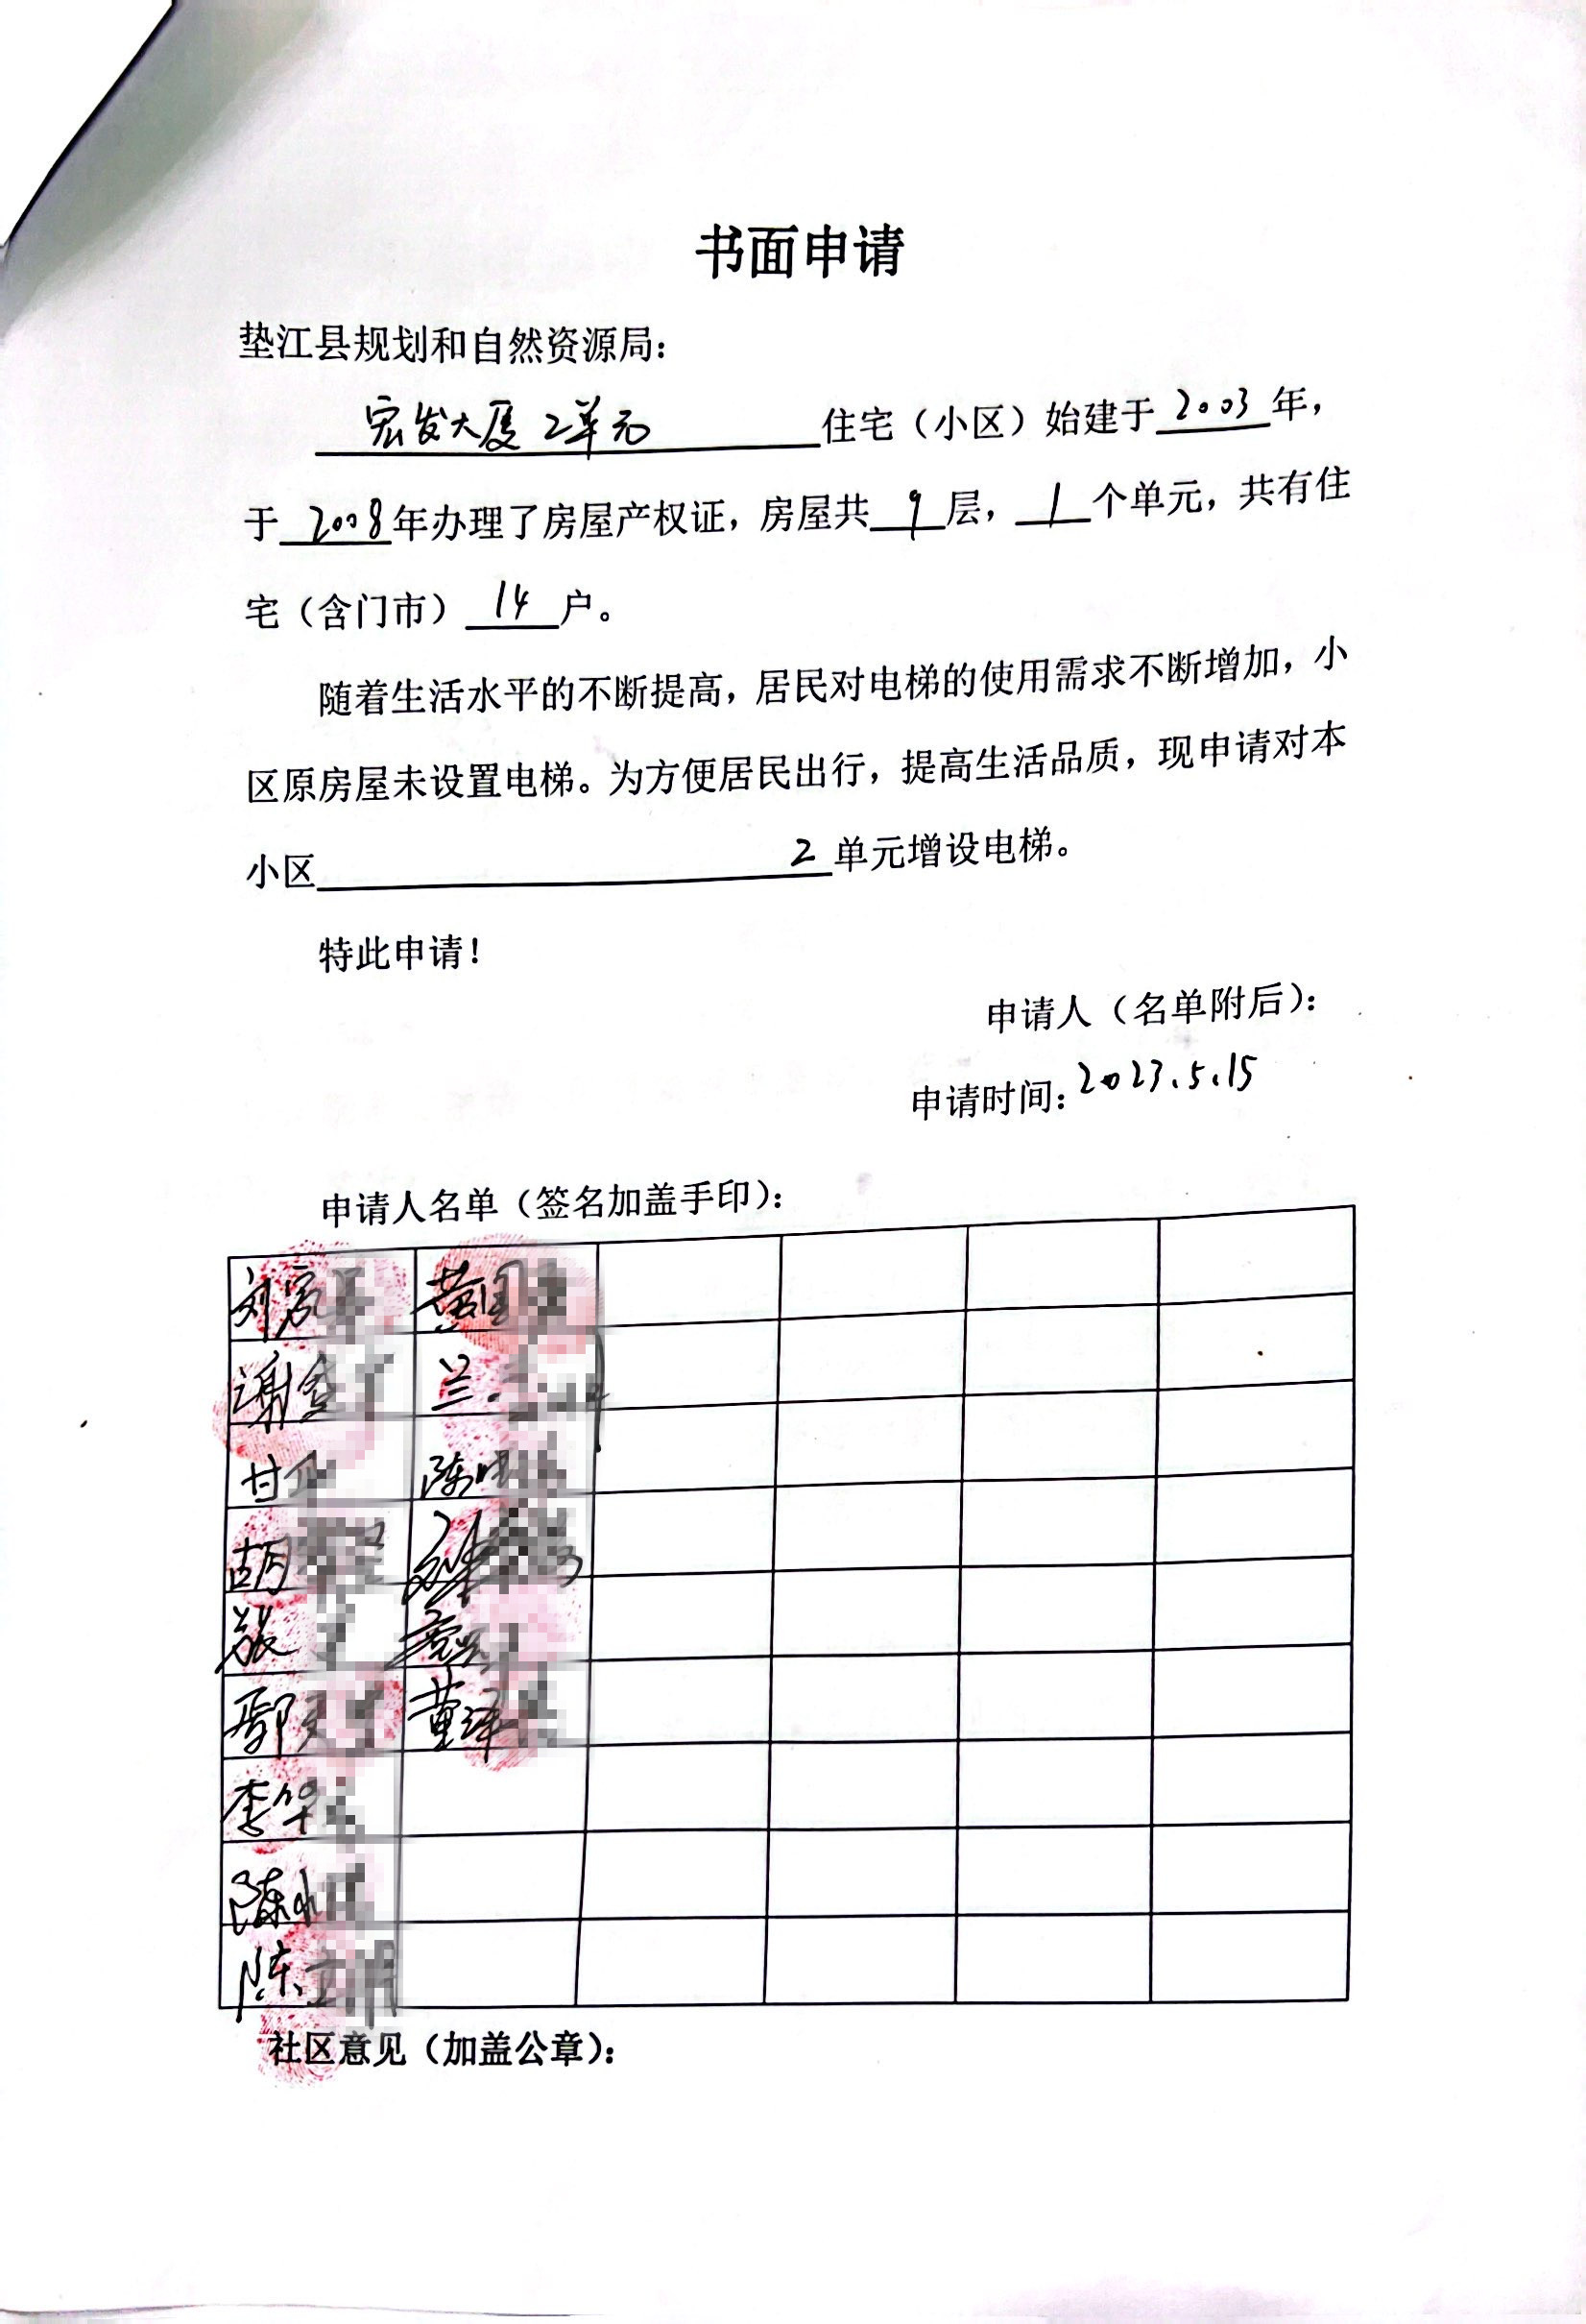 书面申请
垫江县规划和自然资源局：
宏发大厦2单元 住宅（小区）始建于 2003 年，
于 2008 年办理了房屋产权证，房屋共 9 层， 1 个单元，共有住
宅（含门市） 14 户。
随着生活水平的不断提高，居民对电梯的使用需求不断增加，小
区原房屋未设置电梯。为方便居民出行，提高生活品质，现申请对本
小区 2 单元增设电梯。
特此申请！
申请人（名单附后）：
申请时间：2023.5.15
申请人名单（签名加盖手印）：
刘 黄
谢 兰
甘 陈
胡
张
鄢 董
李
陈
陈
社区意见（加盖公章）：